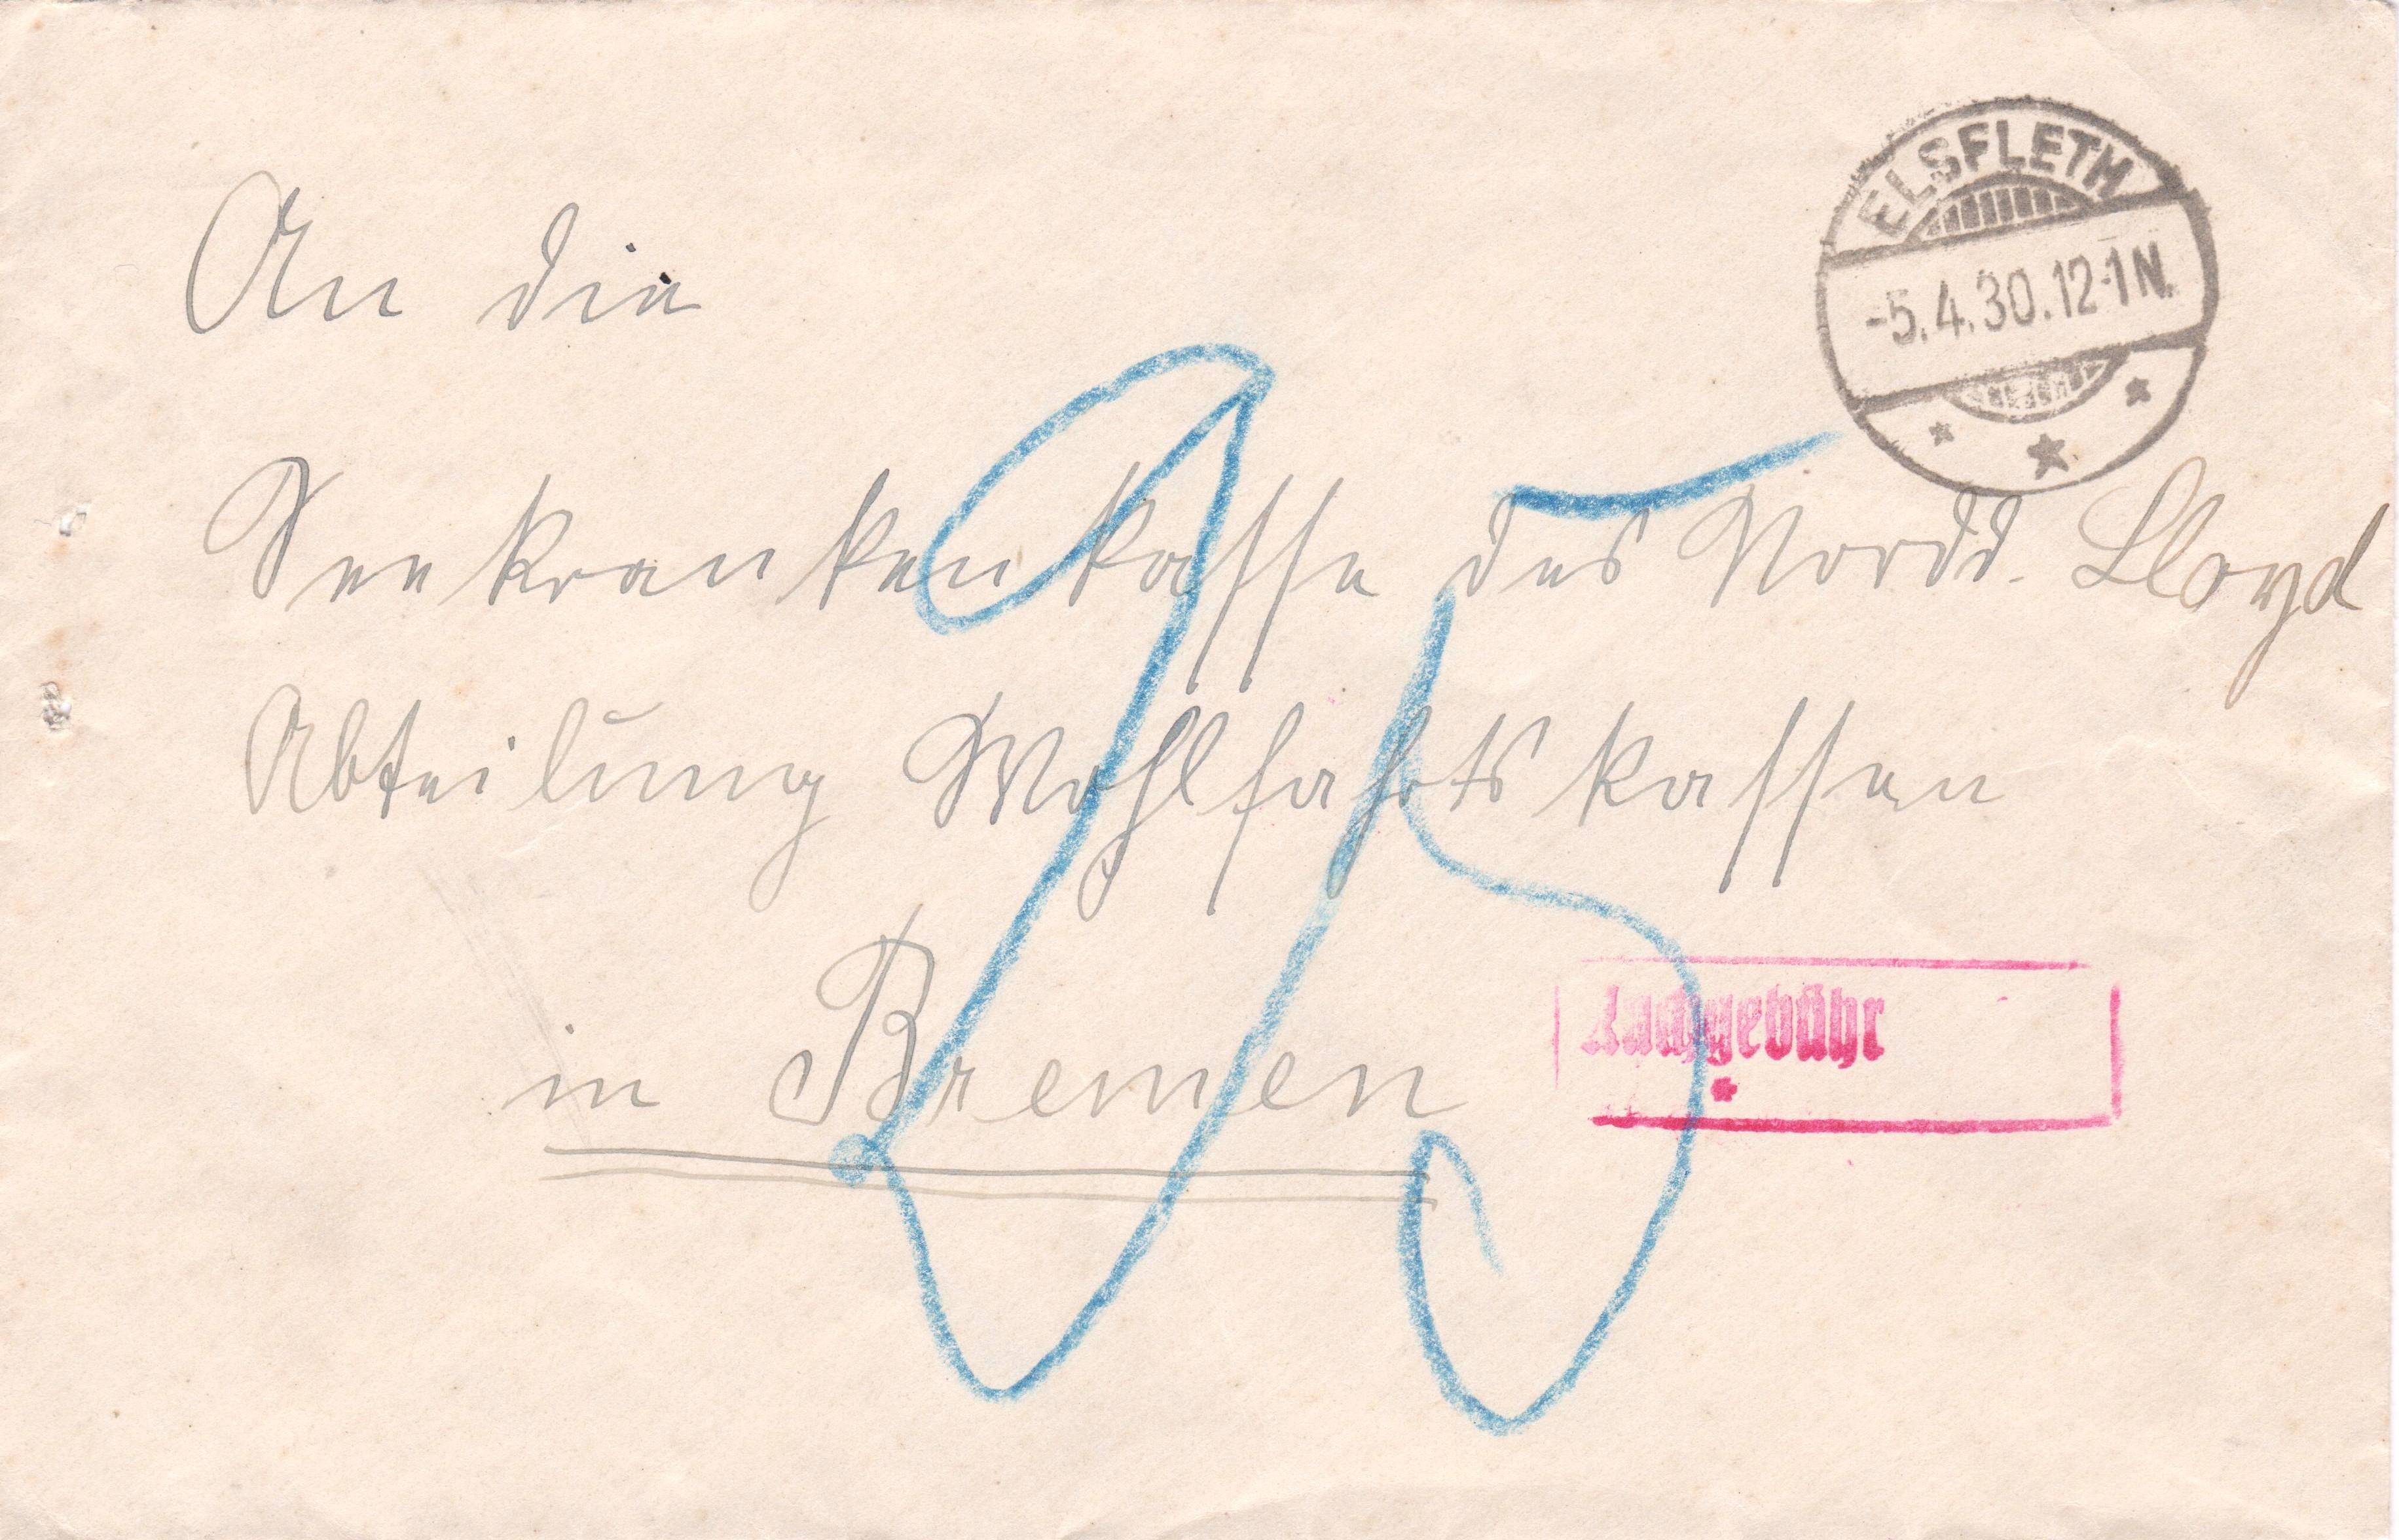 ELSFLETH
-5.4.30.12-1N.
An die
Seekrankenkasse des Nordd. Lloyd
Abteilung Wohlfahrtskassen
in Bremen
25
Nachgebühr